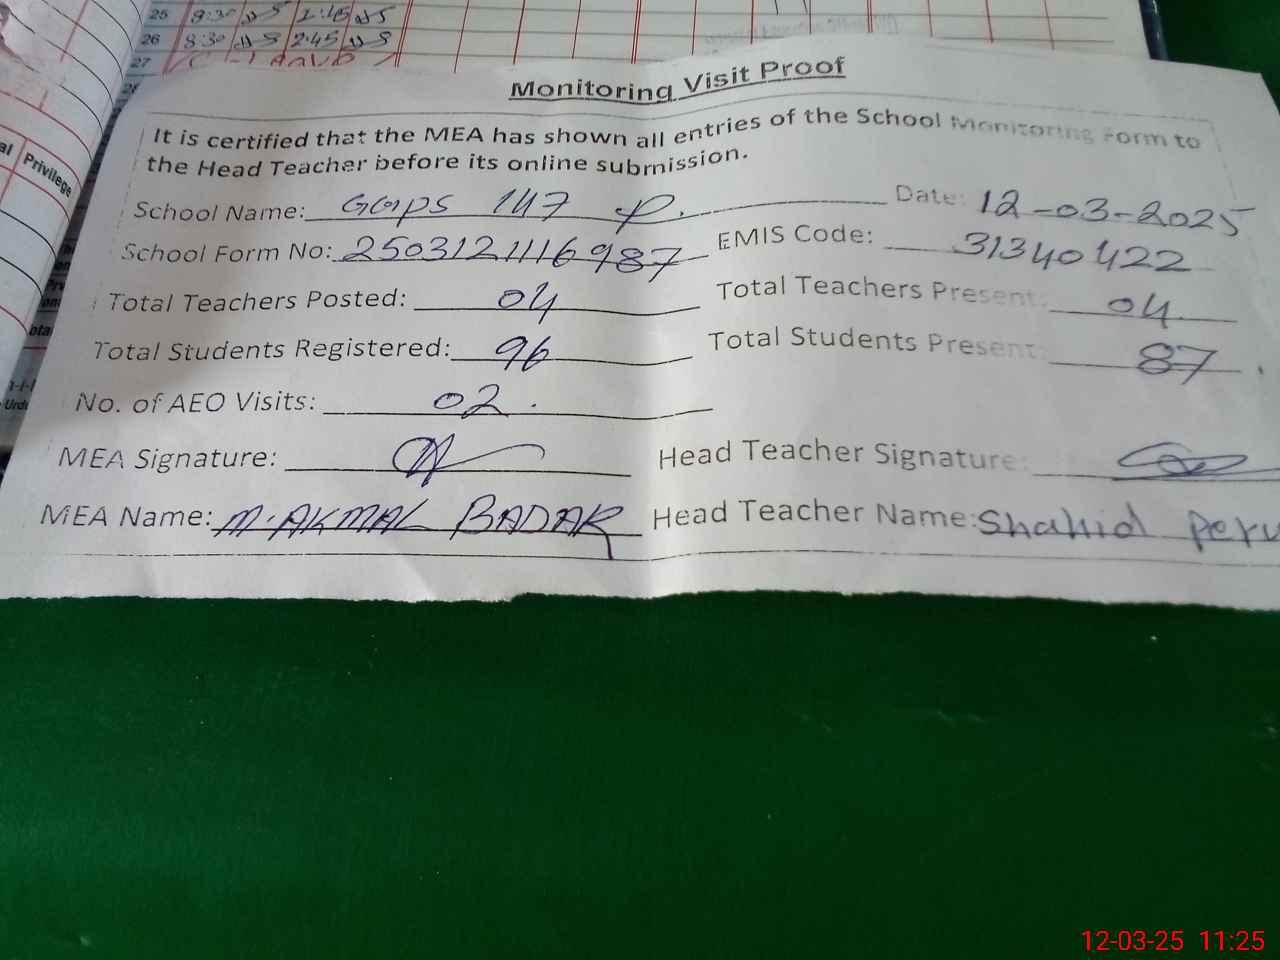 25 8:30 2:45
26 8:30 2:45
27
al Privilege
Monitoring Visit Proof
It is certified that the MEA has shown all entries of the School Monitoring Form to
the Head Teacher before its online submission.
School Name: GGPS 147 P. Date: 12-03-2025
School Form No: 2503121116987 EMIS Code: 31340422
Total Teachers Posted: 04 Total Teachers Present: 04
Total Students Registered: 96 Total Students Present: 87
No. of AEO Visits: 02
MEA Signature: Head Teacher Signature:
MEA Name: M. AKMAL BADAR Head Teacher Name: Shahid
12-03-25 11:25